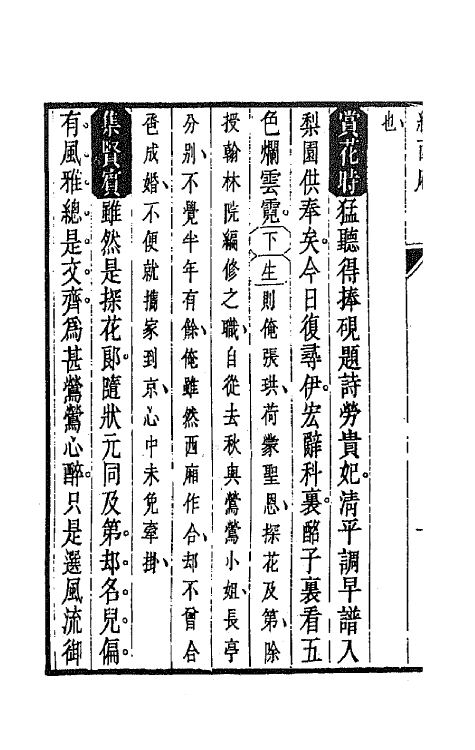 也
賞花時猛聽得捧硯題詩勞貴妃。清平調早譜入
梨園供奉矣。今日復尋伊。宏辭科裏。酩子裏看五
色爛雲霓。下生則俺張珙、荷蒙聖恩、探花及第、除
授翰林院編修之職、自從去秋與鶯鶯小姐、長亭
分别、不覺半年有餘、俺雖然西廂作合、却不曾合
巹成婚、不便就攜家到京、心中未免牽掛、
集賢賓雖然是探花郞。隨狀元同及第。却名兒偏
有風雅。總是文齊。爲甚鶯鶯心醉。只是選風流御